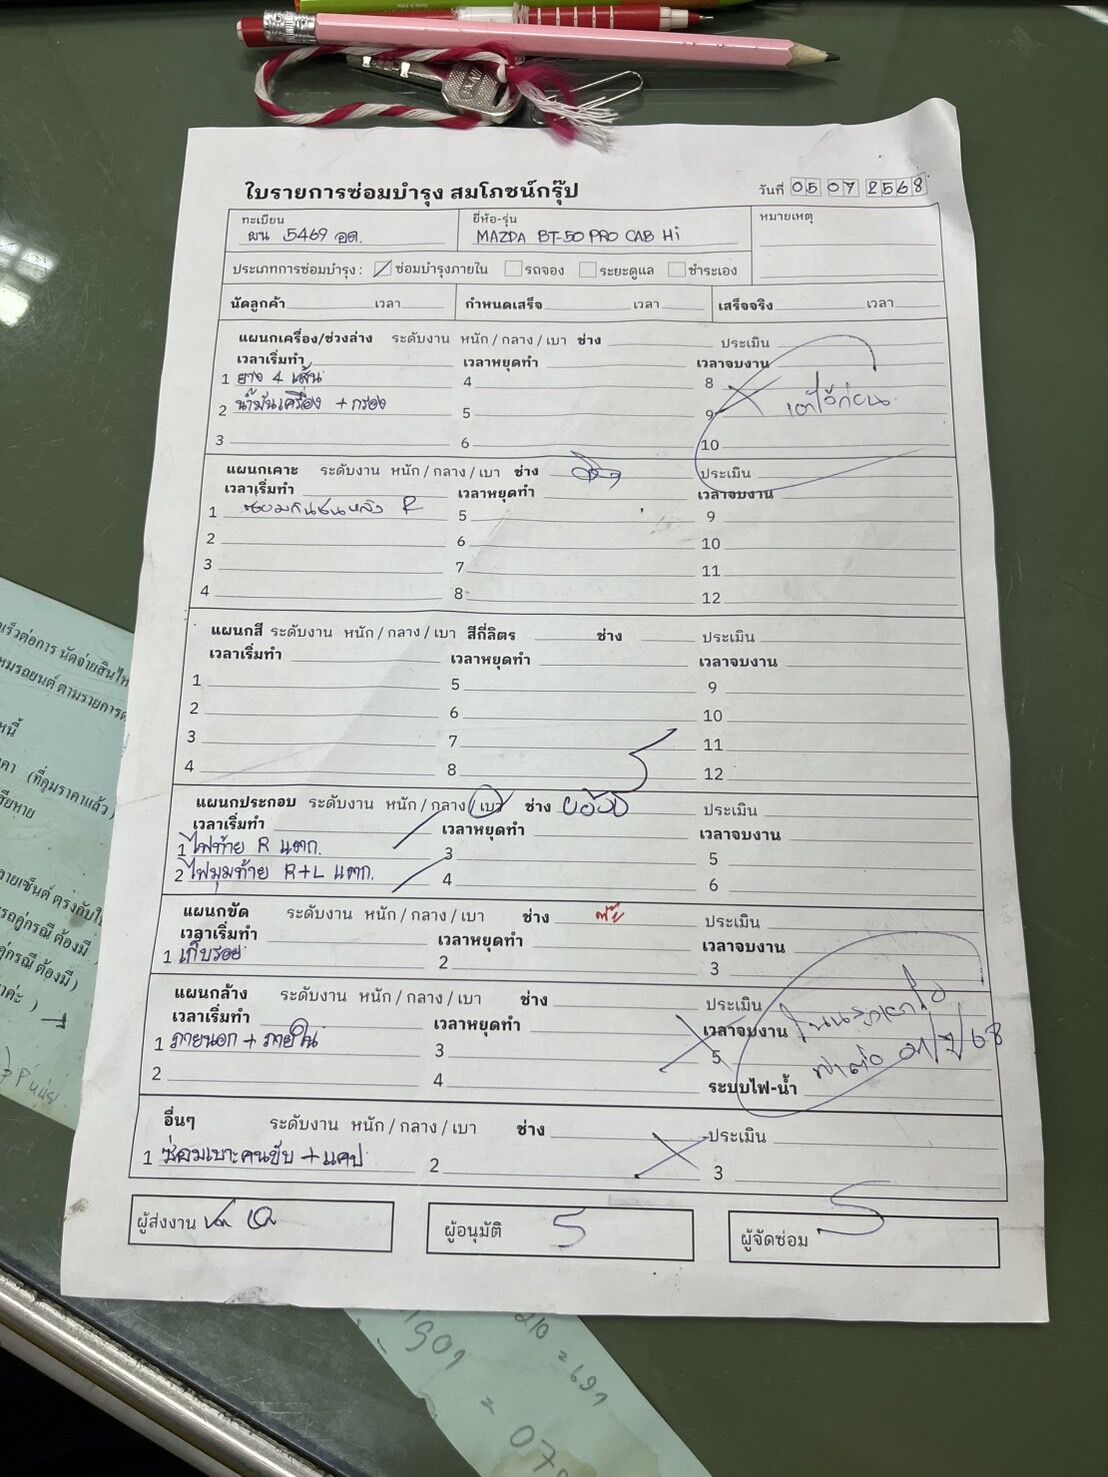 ใบรายการซ่อมบำรุง สมโภชน์กรุ๊ป
วันที่ 05 07 2568
ทะเบียน
ผน 5469 อด.
ยี่ห้อ-รุ่น
MAZDA BT-50 PRO CAB Hi
หมายเหตุ
ประเภทการซ่อมบำรุง : ซ่อมบำรุงภายใน รถจอง ระยะดูแล ชำระเอง
นัดลูกค้า เวลา กำหนดเสร็จ เวลา เสร็จจริง เวลา
แผนกเครื่อง/ช่วงล่าง ระดับงาน หนัก / กลาง / เบา ช่าง ประเมิน
เวลาเริ่มทำ เวลาหยุดทำ เวลาจบงาน
1 ยาง 4 เส้น 4 8
2 น้ำมันเครื่อง + กรอง 5 9
เอาไว้ก่อน
3 6 10
แผนกเคาะ ระดับงาน หนัก / กลาง / เบา ช่าง ประเมิน
เวลาเริ่มทำ เวลาหยุดทำ เวลาจบงาน
1 ซ่อมกันชนหลัง R 5 9
2 6 10
3 7 11
4 8 12
แผนกสี ระดับงาน หนัก / กลาง / เบา สีกี่ลิตร ช่าง ประเมิน
เวลาเริ่มทำ เวลาหยุดทำ เวลาจบงาน
1 5 9
2 6 10
3 7 11
4 8 12
แผนกประกอบ ระดับงาน หนัก / กลาง / เบา ช่าง ประเมิน
เวลาเริ่มทำ เวลาหยุดทำ เวลาจบงาน
1 ไฟท้าย R แตก. 3 5
2 ไฟมุมท้าย R+L แตก. 4 6
แผนกขัด ระดับงาน หนัก / กลาง / เบา ช่าง ประเมิน
เวลาเริ่มทำ เวลาหยุดทำ เวลาจบงาน
1 เก็บรอย 2 3
แผนกล้าง ระดับงาน หนัก / กลาง / เบา ช่าง ประเมิน
เวลาเริ่มทำ เวลาหยุดทำ เวลาจบงาน
1 ภายนอก + ภายใน 3 5
2 4 ระบบไฟ-น้ำ
อื่นๆ ระดับงาน หนัก / กลาง / เบา ช่าง ประเมิน
1 ซ่อมเบาะคนขับ + แคป 2 3
ผู้ส่งงาน ผู้อนุมัติ ผู้จัดซ่อม